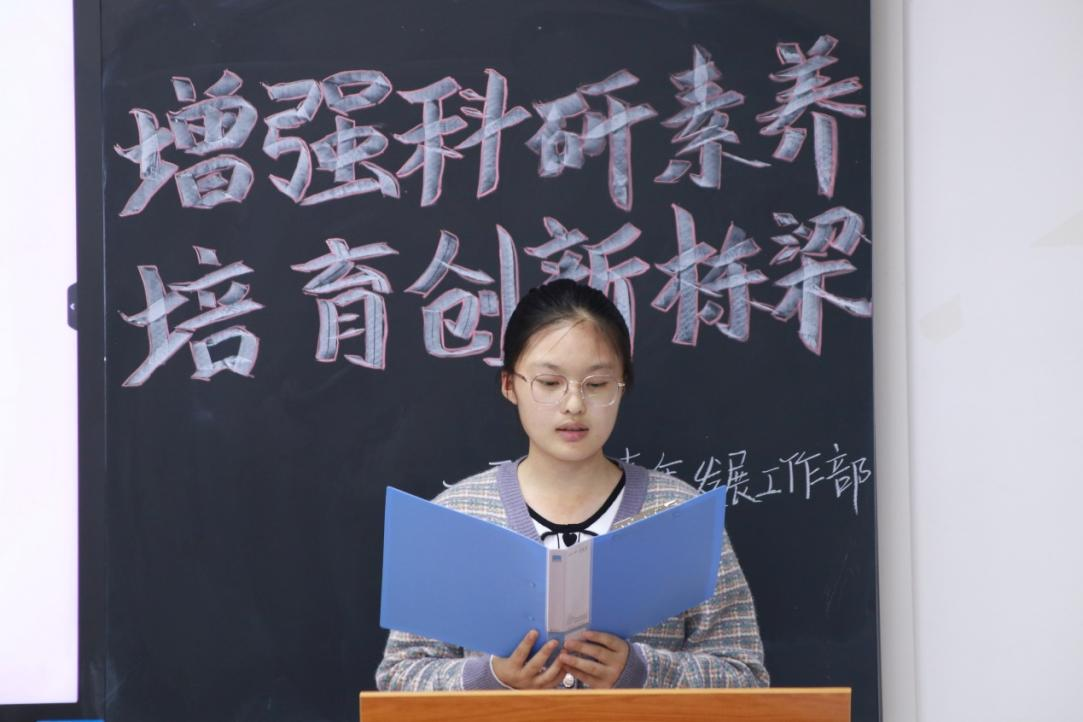 增强科研素养
培育创新栋梁
青年发展工作部